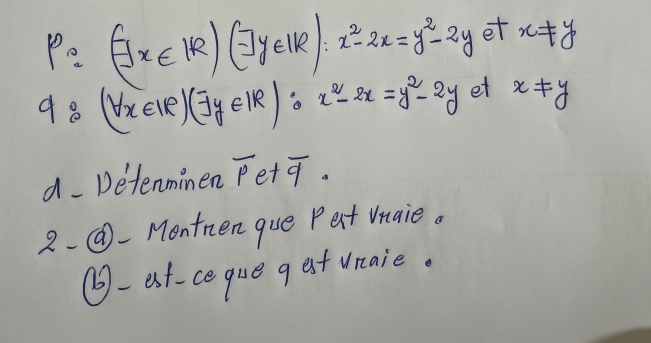 P: (∃x∈ℝ)(∃y∈ℝ): x²-2x=y²-2y et x≠y
q: (∀x∈ℝ)(∃y∈ℝ): x²-2x=y²-2y et x≠y
1- Déterminer P̅ et q̅.
2-ⓐ- Montrer que P est vraie.
ⓑ- est-ce que q est vraie.